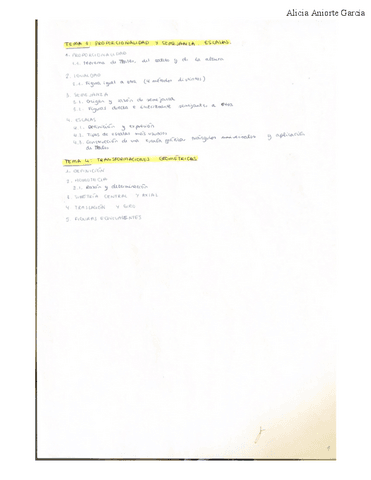 Alicia Aniorte García
TEMA 3: PROPORCIONALIDAD Y SEMEJANZA. ESCALAS.
1. PROPORCIONALIDAD
1.1. Teorema de Thales, del cateto y de la altura
2. IGUALDAD
2.1. Figura igual a otra (métodos distintos)
3. SEMEJANZA
3.1. Origen y razón de semejanza
3.2. Figuras directa e inversamente semejantes a otras
4. ESCALAS
4.1. Definición y expresión
4.2. Tipos de escalas más usuales
4.3. Construcción de una escala gráfica: triángulo universal de escalas y aplicación
de Thales
TEMA 4: TRANSFORMACIONES GEOMÉTRICAS
1. DEFINICIÓN
2. HOMOTECIA
2.1. Razón y determinación
3. SIMETRÍA CENTRAL Y AXIAL
4. TRASLACIÓN Y GIRO
5. FIGURAS EQUIVALENTES